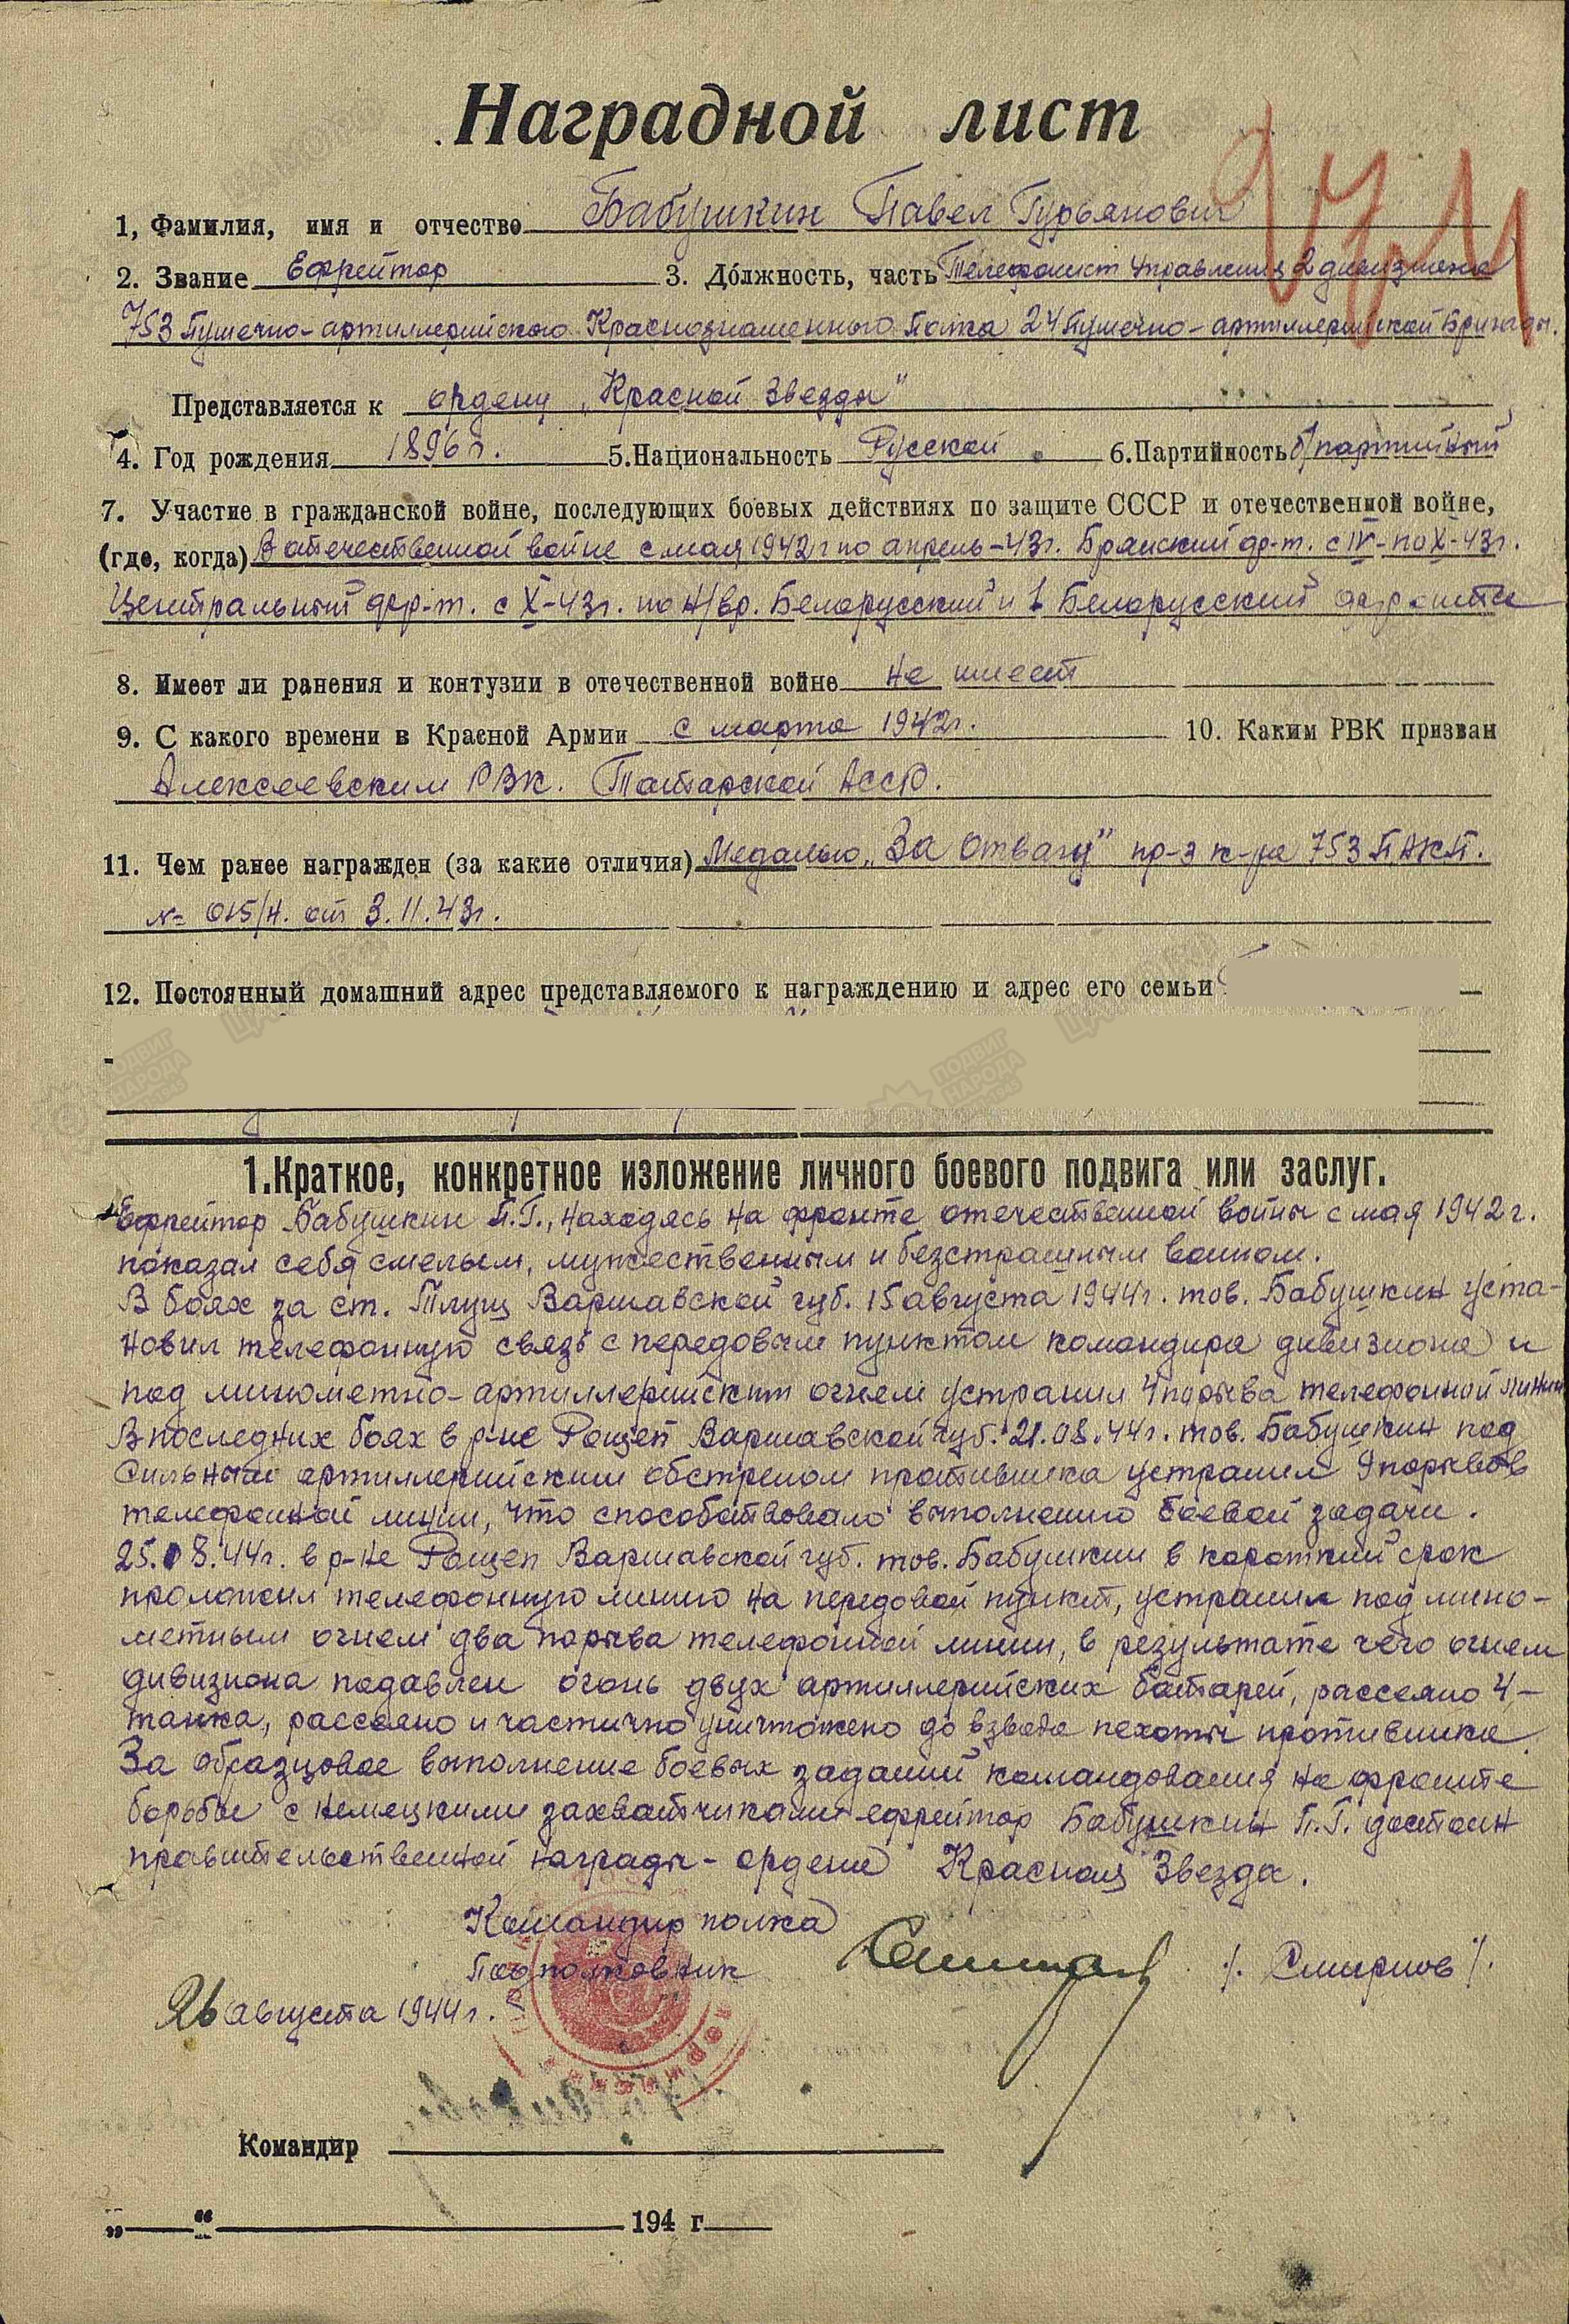 Наградной лист
1, Фамилия, имя и отчество Бабушкин Павел Гурьянович
2. Звание Ефрейтор 3. Должность, часть Телефонист Управления 2 дивизиона
753 Пушечно-артиллерийского Краснознаменного Полка 24 Пушечно-артиллерийской Бригады.
Представляется к ордену „Красной Звезды"
4. Год рождения 1896 г. 5.Национальность Русской 6.Партийность б/партийный
7. Участие в гражданской войне, последующих боевых действиях по защите СССР и отечественной войне,
(где, когда) В отечественной войне с мая 1942 г по апрель-43г. Брянский фр-т. с IV-по X-43г.
Центральный фр-т. с X-43г. по н/вр. Белорусский и 1 Белорусский фронты
8. Имеет ли ранения и контузии в отечественной войне не имеет
9. С какого времени в Красной Армии с марта 1942г. 10. Каким РВК призван
Алексеевским РВК. Татарской АССР.
11. Чем ранее награжден (за какие отличия) Медалью „За Отвагу" пр-з к-ра 753 ПАКП.
№ 015/н. от 3.11.43г.
12. Постоянный домашний адрес представляемого к награждению и адрес его семьи
1.Краткое, конкретное изложение личного боевого подвига или заслуг.
Ефрейтор Бабушкин П.Г., находясь на фронте отечественной войны с мая 1942 г.
показал себя смелым, мужественным и безстрашным воином.
В боях за ст. Тлущ Варшавской губ. 15 августа 1944г. тов. Бабушкин уста-
новил телефонную связь с передовым пунктом командира дивизиона и
под минометно-артиллерийским огнем устранил 4 порыва телефонной линии
В последних боях в р-не Рощеп Варшавской губ. 21.08.44г. тов. Бабушкин под
сильным артиллерийским обстрелом противника устранил 9 порывов
телефонной линии, что способствовало выполнению боевой задачи.
25.08.44г. в р-не Рощеп Варшавской губ. тов. Бабушкин в короткий срок
проложил телефонную линию на передовой пункт, устранил под мино-
метным огнем два порыва телефонной линии, в результате чего огнем
дивизиона подавлен огонь двух артиллерийских батарей, рассеяно 4-
танка, рассеяно и частично уничтожено до взвода пехоты противника.
За образцовое выполнение боевых заданий командования на фронте
борьбы с немецкими захватчиками ефрейтор Бабушкин П.Г. достоин
правительственной награды - ордена Красная Звезда.
Командир полка
Подполковник /. Смирнов /.
26 августа 1944 г.
Командир
„ “ 194 г